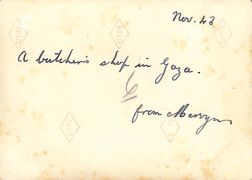 Nov. 43
A butcher's shop in Gaza.
from Mervyn